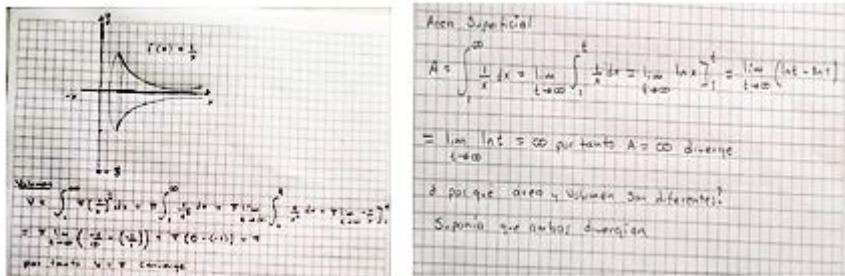 f(x) = 1/x
Volumen
V = ∫₁^∞ π(1/x)² dx = π ∫₁^∞ 1/x² dx = π lim t→∞ ∫₁^t 1/x² dx = π lim t→∞ -1/x]₁^t
= π lim t→∞ (-1/t - (-1/1)) = π(0-(-1)) = π
por tanto V = π converge
Area Superficial
A = ∫₁^∞ 1/x dx = lim t→∞ ∫₁^t 1/x dx = lim t→∞ lnx]₁^t = lim t→∞ (lnt - ln1)
= lim t→∞ lnt = ∞ por tanto A = ∞ diverge
¿ por que area y Volumen son diferentes?
Suponia que ambos divergian